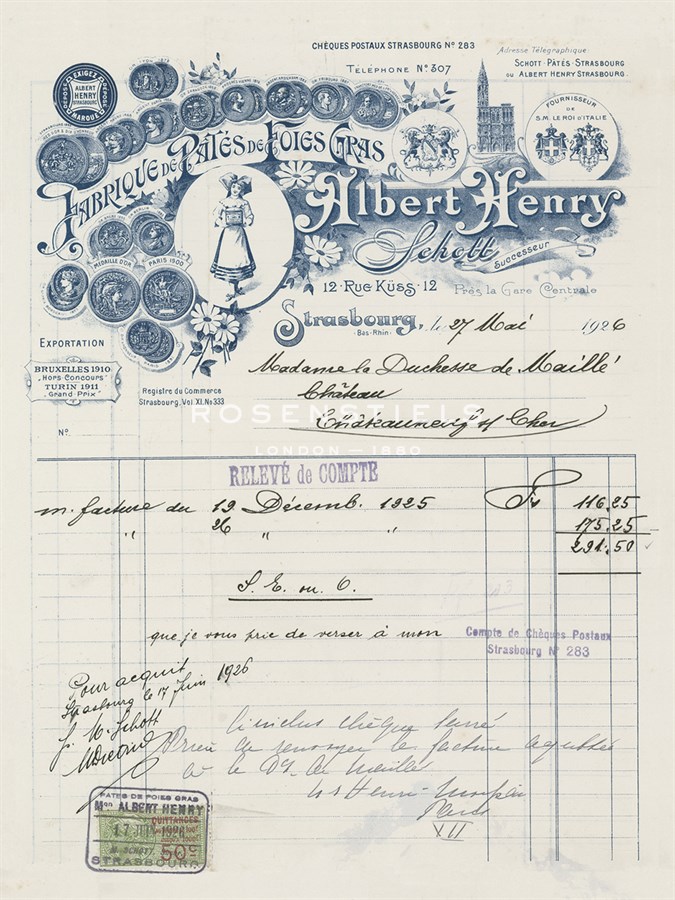 CHÈQUES POSTAUX STRASBOURG No 283
TÉLÉPHONE No 307
Adresse Télégraphique:
SCHOTT-PÂTÉS-STRASBOURG
OU ALBERT HENRY STRASBOURG
EXIGEZ
ALBERT HENRY
STRASBOURG
MARQUE
FOURNISSEUR DE
S.M. LE ROI D'ITALIE
FABRIQUE DE PÂTÉS DE FOIES GRAS
Albert Henry
Schott
Successeur
12 - RUE KÜSS - 12
Près la Gare Centrale
MÉDAILLE D'OR
PARIS 1900
Strasbourg, le 27 Mai 1926
-Bas-Rhin-
EXPORTATION
BRUXELLES 1910
"Hors-Concours"
TURIN 1911
"Grand-Prix"
Registre du Commerce
Strasbourg. Vol XI. No 333
No
Madame la Duchesse de Maillé
Château
Châteauneuf s/ Cher
ROSENSTIELS
LONDON — 1880
RELEVÉ de COMPTE
m. facture du 19 Décemb. 1925 Fr 116.25
" 26 " " 175.25
291.50
S. E. ou O.
que je vous prie de verser à mon
Compte de Chèques Postaux
Strasbourg No 283
Pour acquit
Strasbourg le 17 Juin 1926
Schott
Ci inclus chèque barré
Prière de renvoyer la facture acquittée
à la Dsse de Maillé
Paris
XVI
PATES DE FOIES GRAS
Mon ALBERT HENRY
QUITTANCES
17 JUIN 1926
SCHOTT
50c
STRASBOURG